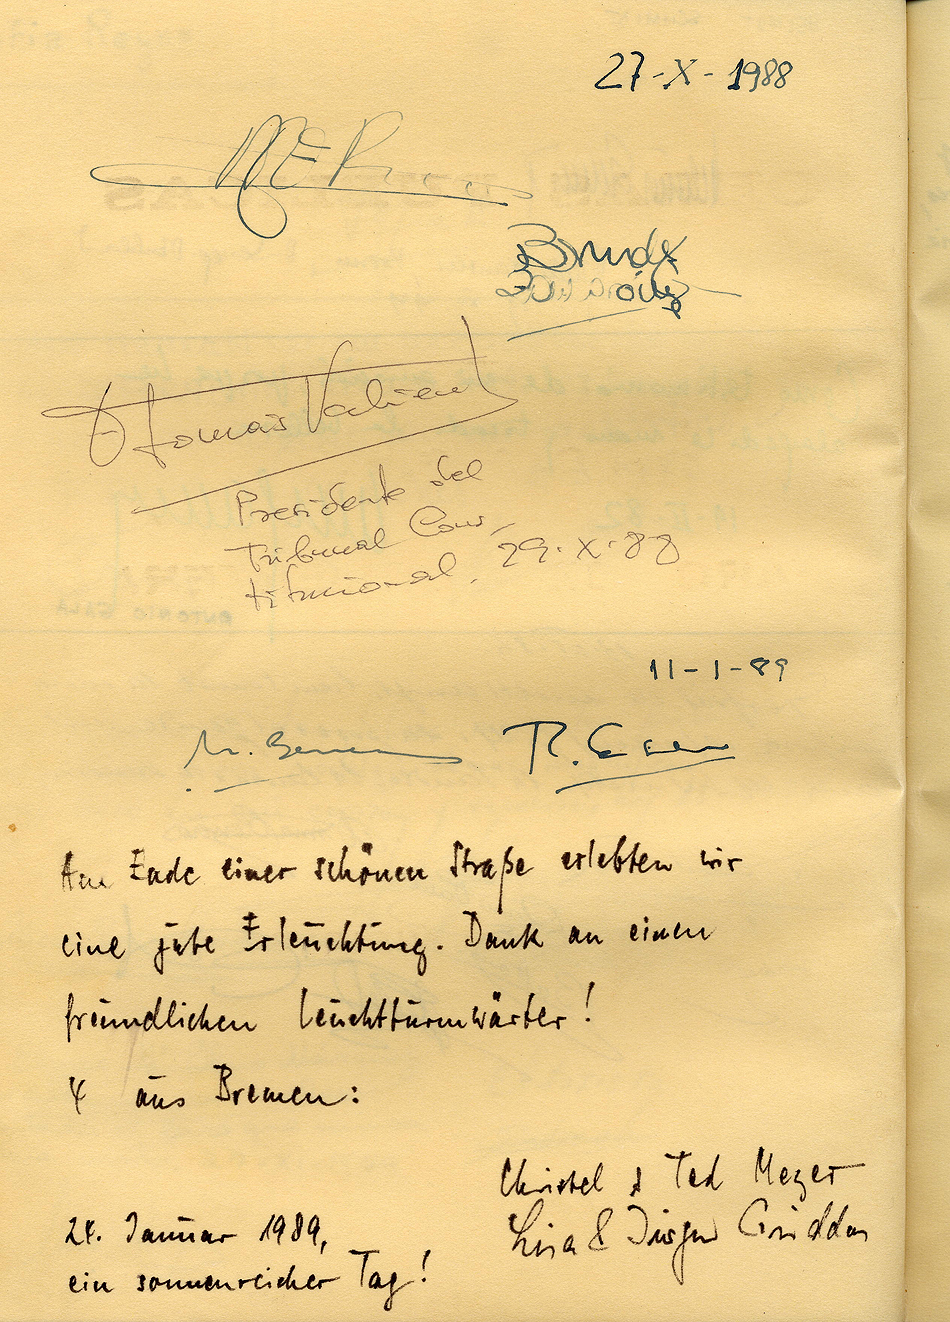 27-X-1988
F Tomás Valiente
Presidente del
Tribunal Cons-
titucional. 29-X-88
11-1-89
Am Ende einer schönen Straße erlebten wir
eine gute Erleuchtung. Dank an einen
freundlichen Leuchtturmwärter!
4 aus Bremen:
Christel & Ted Meyer
Lisa & Jürgen
24. Januar 1989,
ein sonnenreicher Tag!